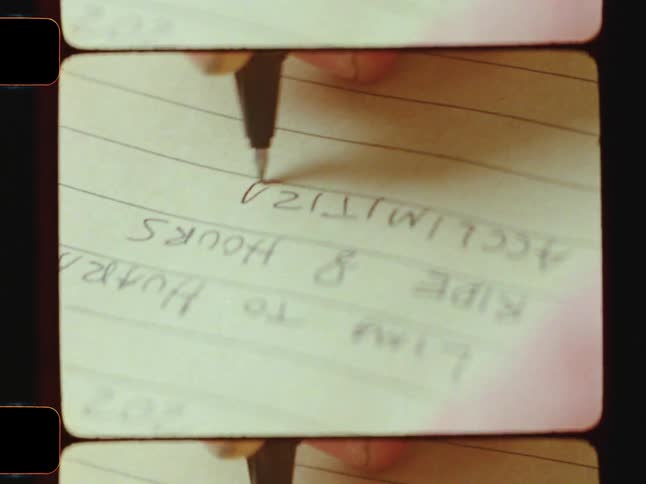 LIMA TO HUARA
RIDE 8 HOURS
ACCLIMITIZA